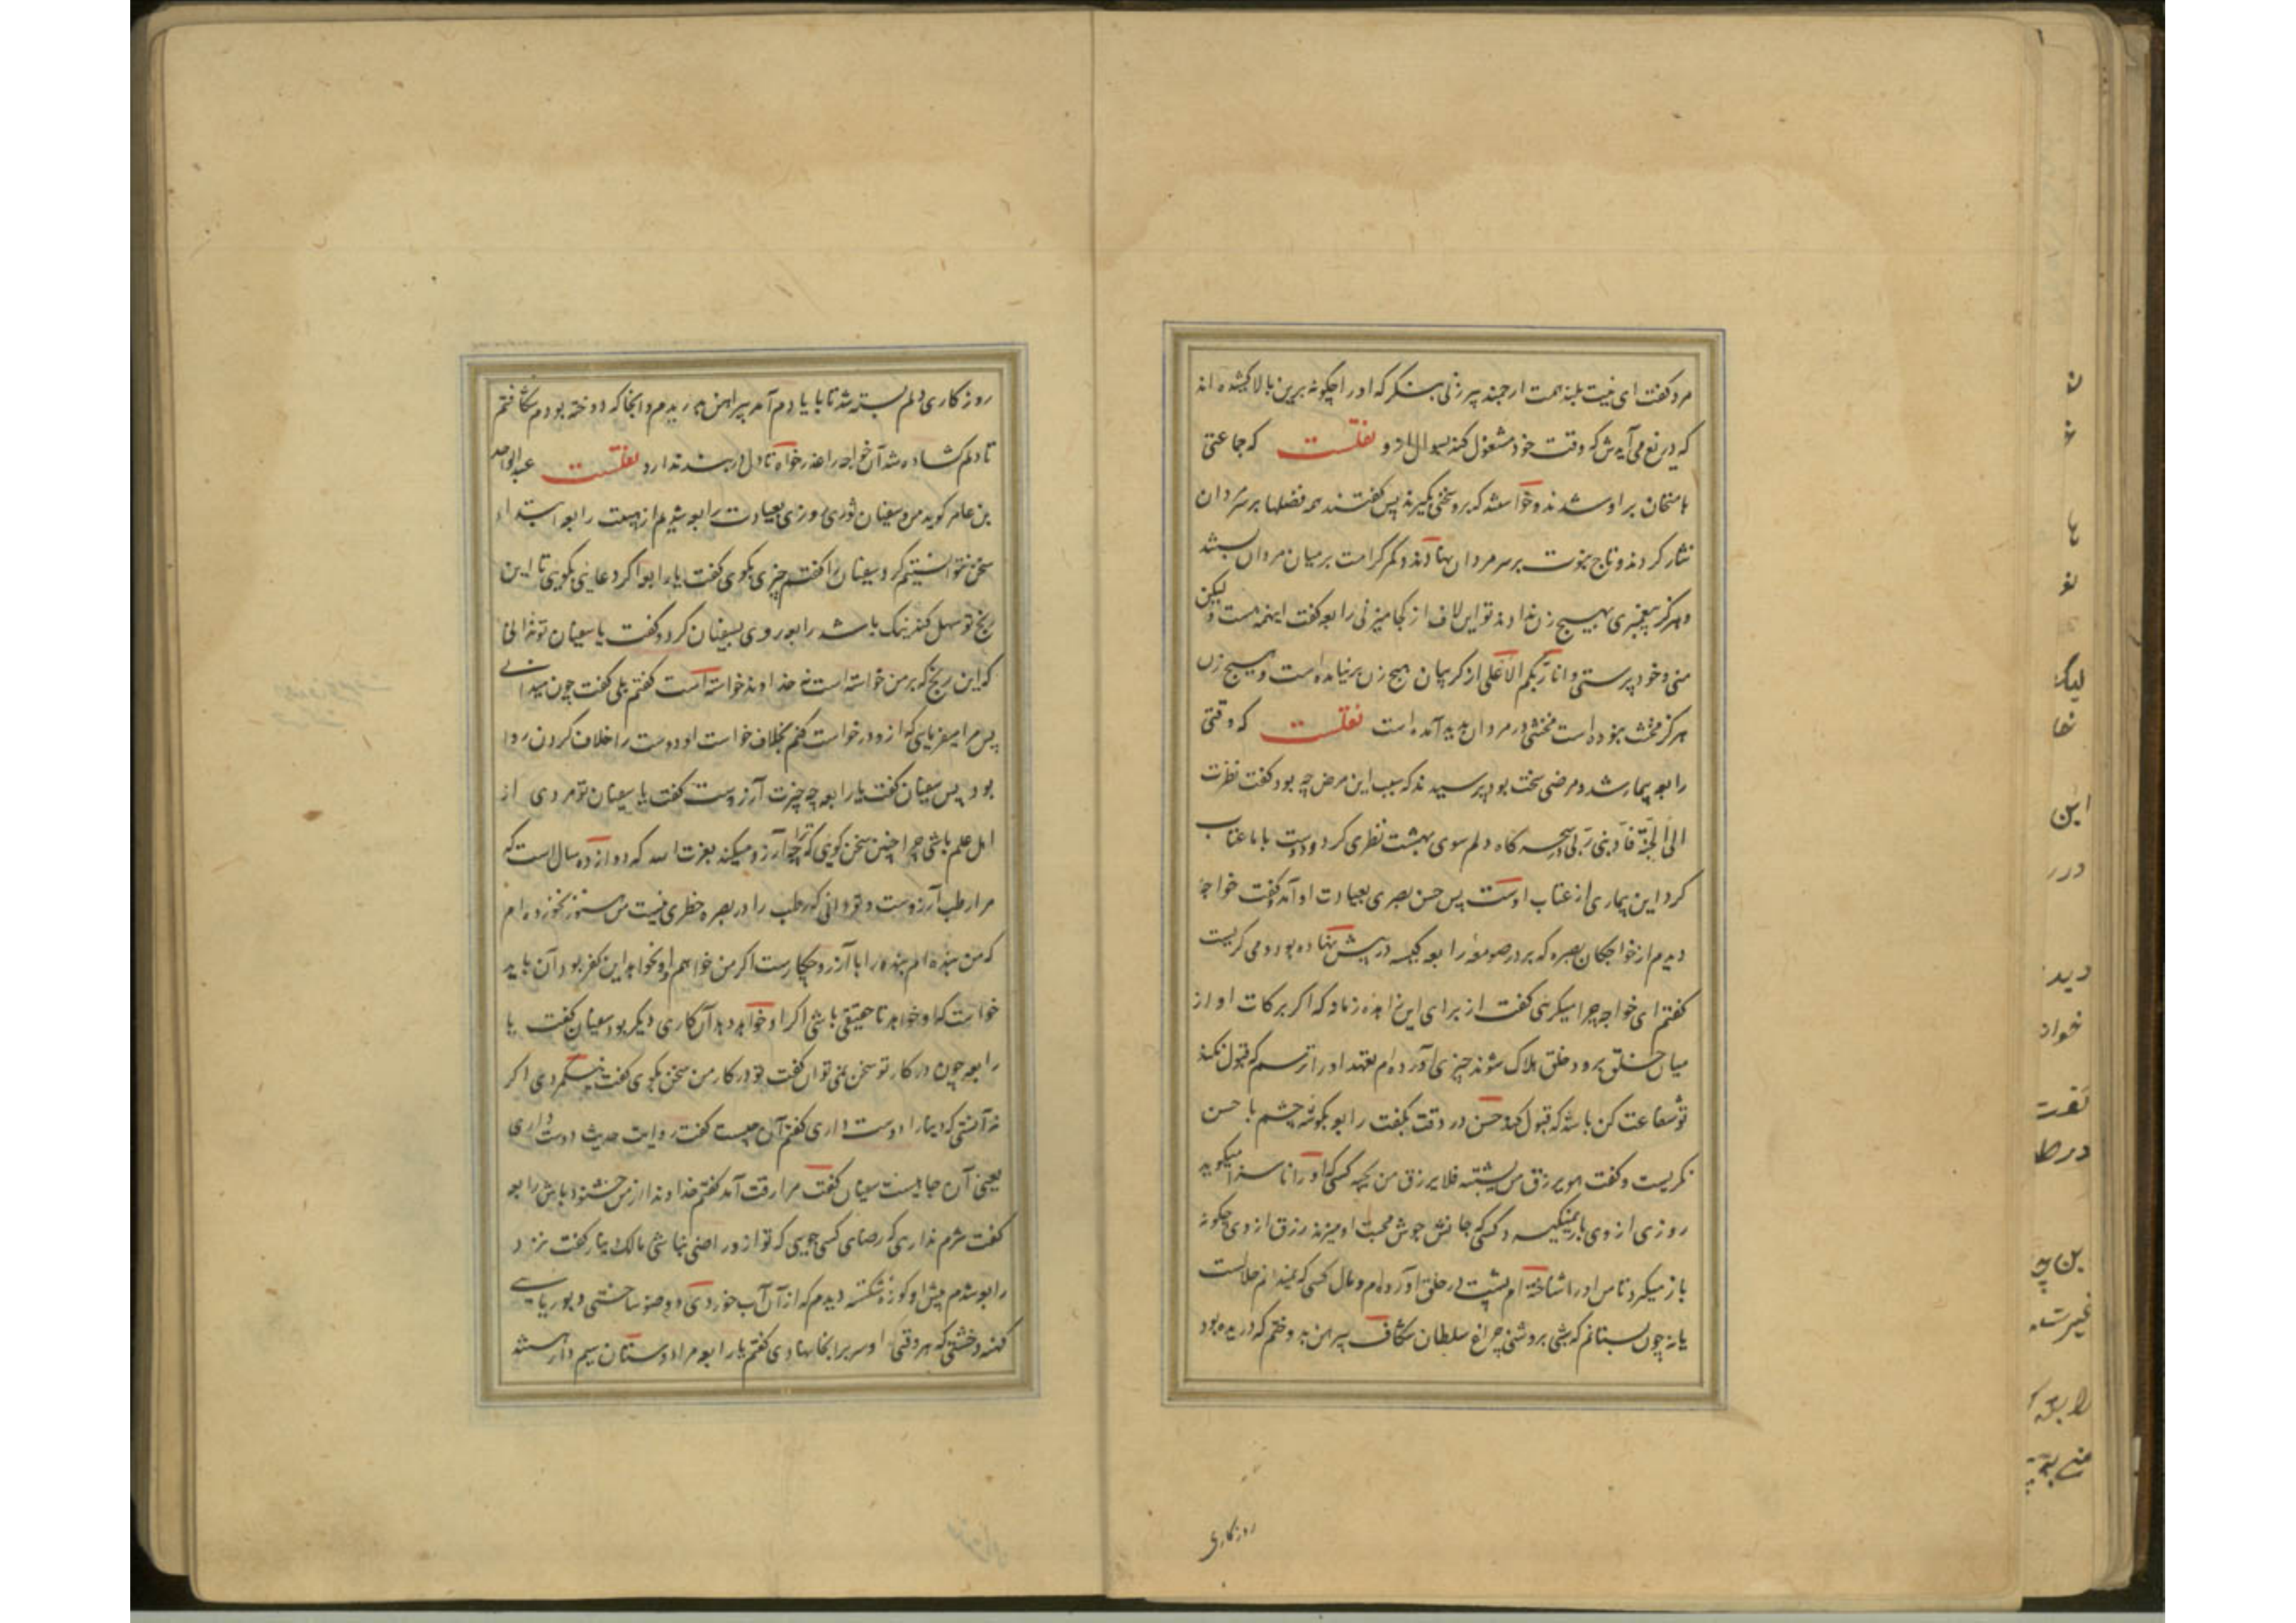 مرد گفت ای نیت بلند همت ارجمند پیرزنی بنگر که او را چگونه برین بالا کشیده اند
که دریغ می آیدش که وقت خود مشغول کند بسوال ازو نقلست که جماعتی
بامتحان بر او شدند و خواستند که برو سخنی بگیرند پس گفتند همه فضلها بر سر مردان
نثار کردند و تاج نبوت بر سر مردان نهادند و کمر کرامت بر میان مردان بستند
و هرگز پیغمبری بهیچ زن نداده اند تو این لاف از کجا میزنی رابعه گفت اینهمه هست ولیکن
منی و خود پرستی و انا ربکم الاعلی از گریبان هیچ زن برنیامده است و هیچ زن
هرگز مخنث نبوده است مخنثی در مردان پدید آمده است نقلست که وقتی
رابعه بیمار شد و مرضی سخت بود پرسیدند که سبب این مرض چه بود گفت نظرت
الی الجنة فادبنی ربی در سحرگاه دلم سوی بهشت نظری کرد و دوست با ما عتاب
کرد این بیماری از عتاب اوست پس حسن بصری بعیادت او آمد گفت خواجهٔ
دیدم از خواجگان بصره که بر در صومعهٔ رابعه کیسه در پیش نهاده بود و می گریست
گفتم ای خواجه چرا میگریی گفت از برای این زاهدهٔ زمانه که اگر برکات او از
میان خلق برود خلق هلاک شوند چیزی آورده ام تعهد او را ترسم که قبول نکند
تو شفاعت کن باشد که قبول کند حسن در رفت بگفت رابعه بگوشهٔ چشم با حسن
نگریست و گفت هو یرزق من یشتمه فلا یرزق من یحبه کسی که او را ناسزا میگوید
روزی از وی باز نمیگیرد و کسی که جانش جوش محبت او میزند رزق از وی چگونه
باز میگیرد تا من او را شناخته ام پشت در خلق آورده ام و مال کسی که نمیدانم حلالست
یا نه چون بستانم که شبی بروشنی چراغ سلطان شکاف پیراهن بدوختم که دریده بود
روزکاری
روزکاری دلم بسته شد تا با یادم آمد پیراهن بدریدم و آنجا که دوخته بودم شکافتم
تا دلم گشاده شد آن خواجه را عذر خواه تا دلم در بند ندارد نقلست عبدالواحد
بن عامر گوید من و سفیان ثوری روزی بعیادت رابعه شدیم از هیبت رابعه ابتداء
سخن نتوانستیم کرد سفیان را گفتم چیزی بگوی گفت یا رابعه اگر دعایی بگویی تا این
رنج تو سهل کند نیک باشد رابعه روی بسفیان کرد و گفت یا سفیان تو ندانی
که این رنج که بر من خواسته است نه خداوند خواسته است گفتم بلی گفت چون میدانی
پس مرا میفرمایی که ازو درخواست کنم بخلاف خواست او دوست را خلاف کردن روا
بود پس سفیان گفت یا رابعه چه چیزت آرزوست گفت یا سفیان تو مردی از
اهل علم باشی چرا چنین سخن گویی که ترا چه آرزو میکند بعزت الله که دوازده سال است که
مرا رطب آرزوست و تو دانی که رطب را در بصره خطری نیست من هنوز نخورده ام
که من بنده ام بنده را با آرزو چکارست اگر من خواهم او نخواهد این کفر بود آن باید
خواست که او خواهد تا حقیقی باشی اگر او خواهد دهد آن کاری دیگر بود سفیان گفت یا
رابعه چون در کار تو سخن نمی توان گفت تو در کار من سخن بگوی گفت نیکمردی اگر
نه آنستی که دنیا را دوست داری گفتم آن چیست گفت روایت حدیث دوست داری
یعنی آن جاهیست سفیان گفت مرا رقت آمد گفتم خداوندا از من خشنود باش رابعه
گفت شرم نداری که رضای کسی جویی که تو از و راضی نباشی مالک دینار گفت نزد
رابعه شدم پیش او کوزهٔ شکسته دیدم که از آن آب خوردی و وضو ساختی و بوریایی
کهنه و خشتی که هر وقتی او سر بر آنجا نهادی گفتم یا رابعه مرا دوستان سیم دار هستند